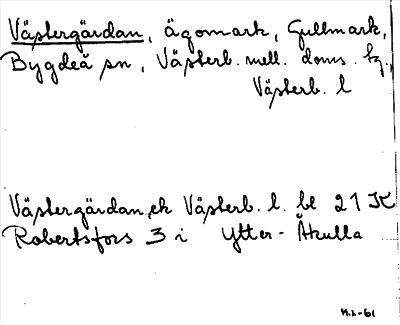 Västergärdan, ägomark, Gullmark,
Bygdeå sn, Västerb. mell. doms. tg.,
Västerb. l
Västergärdan, ek Västerb. l. bl 21 JK
Robertsfors 3 i Ytter-Åkulla